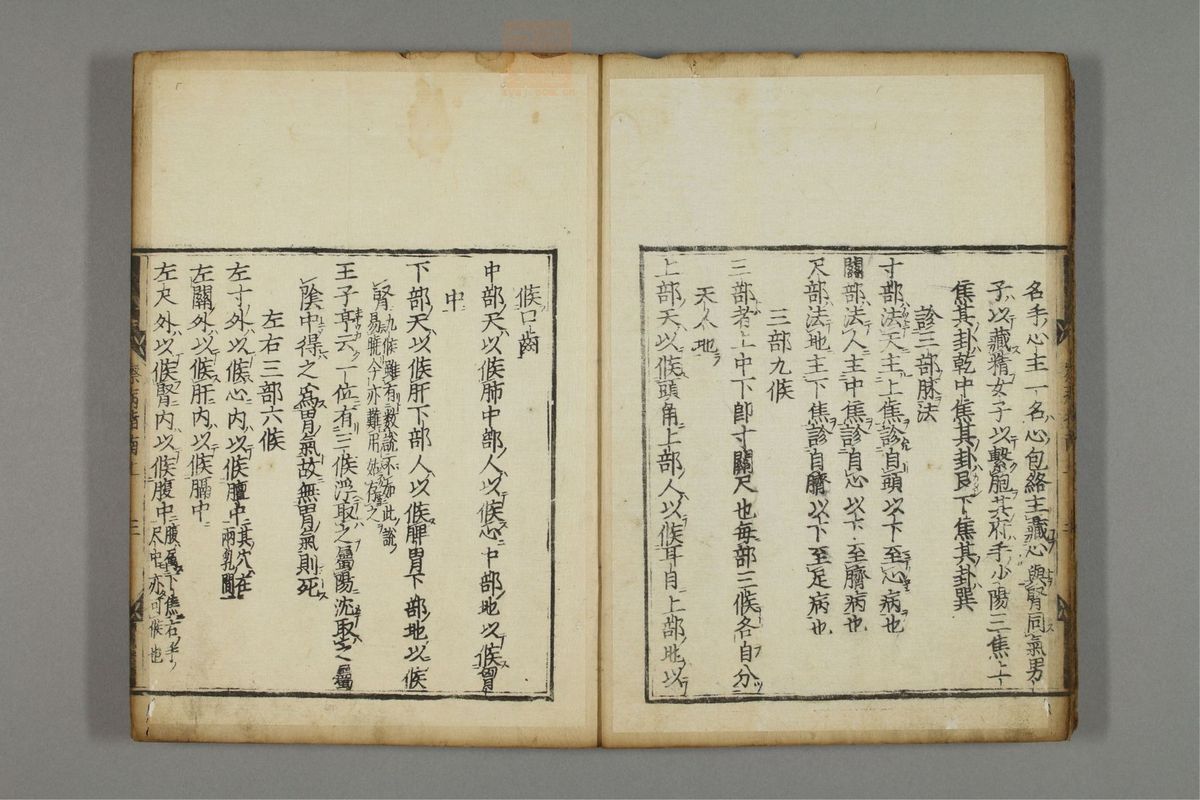 名手心主一名心包絡主藏心與腎同氣男
子以藏精女子以繫胞其府手少陽三焦上
焦其卦乾中焦其卦艮下焦其卦巽
診三部脉法
寸部法天主上焦診自頭以下至心病也
關部法人主中焦診自心以下至臍病也
尺部法地主下焦診自臍以下至足病也
三部九候
三部者上中下卽寸關尺也每部三候各自分
天人地
上部天以候頭角上部人以候耳目上部地以
候口齒
中部天以候肺中部人以候心中部地以候胃
中
下部天以候肝下部人以候脾胃下部地以候
腎九候雖有數說不如此說
易曉今亦難用姑存之
王子亨云一位有三候浮取之屬陽沈取之屬
陰中得之爲胃氣故無胃氣則死
左右三部六候
左寸外以候心內以候膻中其穴在
兩乳間
左關外以候肝內以候膈中
左尺外以候腎內以候腹中腹屬下焦右手
尺中亦可候也